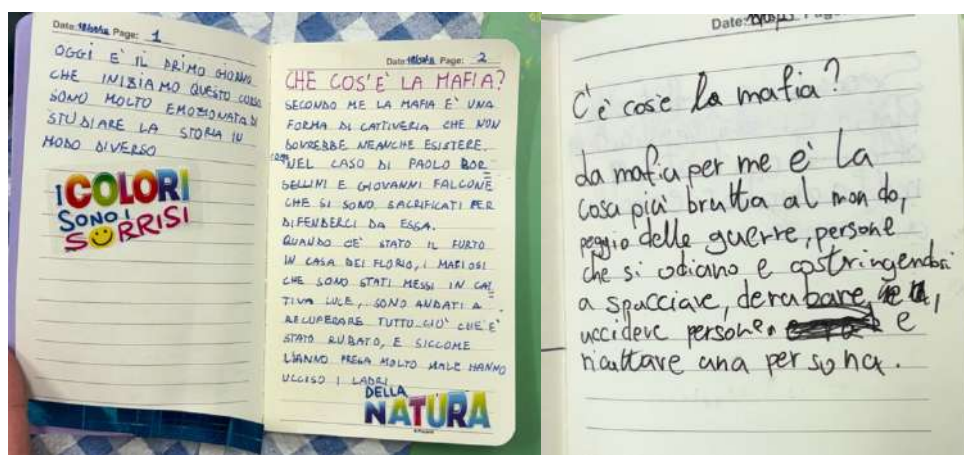 Date: Page: 1
OGGI E' IL PRIMO GIORNO
CHE INIZIAMO QUESTO CORSO
SONO MOLTO EMOZIONATA DI
STUDIARE LA STORIA IN
MODO DIVERSO
I COLORI
SONO I
SORRISI
Date: Page: 2
CHE COS'E' LA MAFIA?
SECONDO ME LA MAFIA E' UNA
FORMA DI CATTIVERIA CHE NON
DOVREBBE NEANCHE ESISTERE.
COME NEL CASO DI PAOLO BOR
SELLINI E GIOVANNI FALCONE
CHE SI SONO SACRIFICATI PER
DIFENDERCI DA ESSA.
QUANDO CE' STATO IL FURTO
IN CASA DEI FLORIO, I MAFIOSI
CHE SONO STATI MESSI IN CAT
TIVA LUCE, SONO ANDATI A
RECUPERARE TUTTO CIO' CHE E'
STATO RUBATO, E SICCOME
L'HANNO PRESA MOLTO MALE HANNO
UCCISO I LADRI
DELLA
NATURA
Date:
C'è cos'e la mafia?
La mafia per me e' la
cosa più brutta al mondo,
peggio delle guerre, persone
che si odiano e costringendosi
a spacciare, derubare,
uccidere persone e
ricattare una persona.